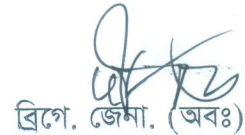 ব্রিগে. জেনা. (অবঃ)